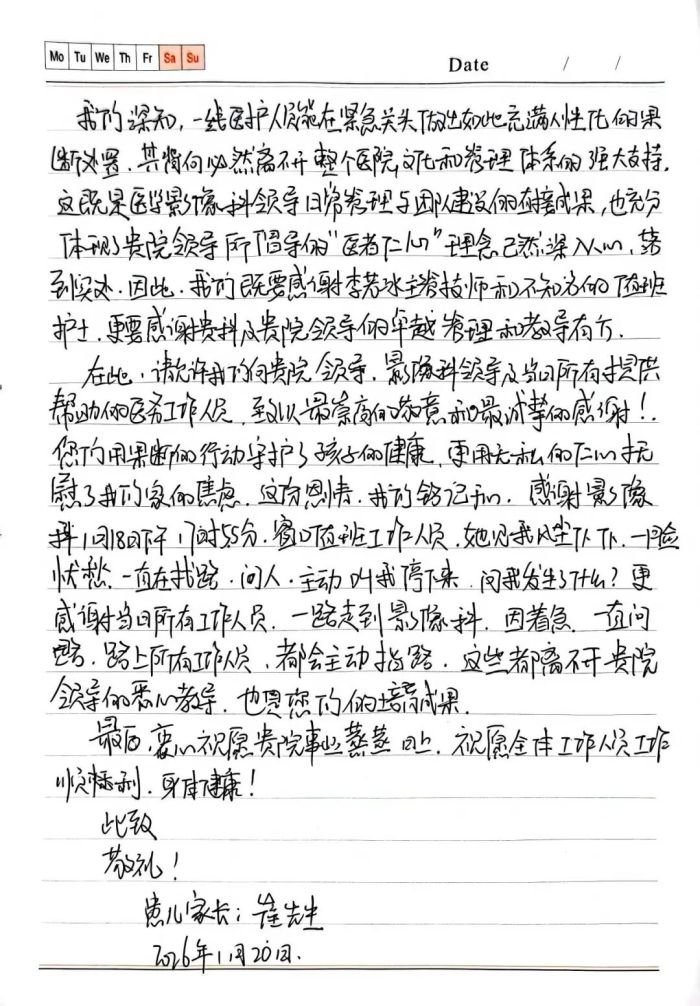 Mo Tu We Th Fr Sa Su
Date / /
我们深知,一线医护人员能在紧急关头做出如此充满人性化的果
断处置,其背后必然离不开整个医院文化和管理体系的强大支持.
这既是医学影像科领导日常管理与团队建设的直接成果,也充分
体现了贵院领导所倡导的“医者仁心”理念已然深入人心,落
到实处.因此,我们既要感谢李若冰主管技师和不知名的值班
护士,更要感谢贵科及贵院领导的卓越管理和教导有方.
在此,请允许我们向贵院领导,影像科领导及当日所有提供
帮助的医务工作人员,致以最崇高的敬意和最诚挚的感谢!
您们用果断的行动守护了孩子的健康,更用无私的仁心抚
慰了我们家的焦虑.这份恩情,我们铭记于心.感谢影像
科1月18日下午17时55分,窗口值班工作人员,她见我风尘仆仆,一脸
忧愁,一直在找路,问人,主动叫我停下来,问我发生了什么?更
感谢当日所有工作人员,一路走到影像科,因着急,一直问
路,路上所有工作人员,都会主动指路,这些都离不开贵院
领导的悉心教导,也是您们的培育成果.
最后,衷心祝愿贵院事业蒸蒸日上,祝愿全体工作人员工作
顺利,身体健康!
此致
敬礼!
患儿家长:崔先生
2026年1月20日.